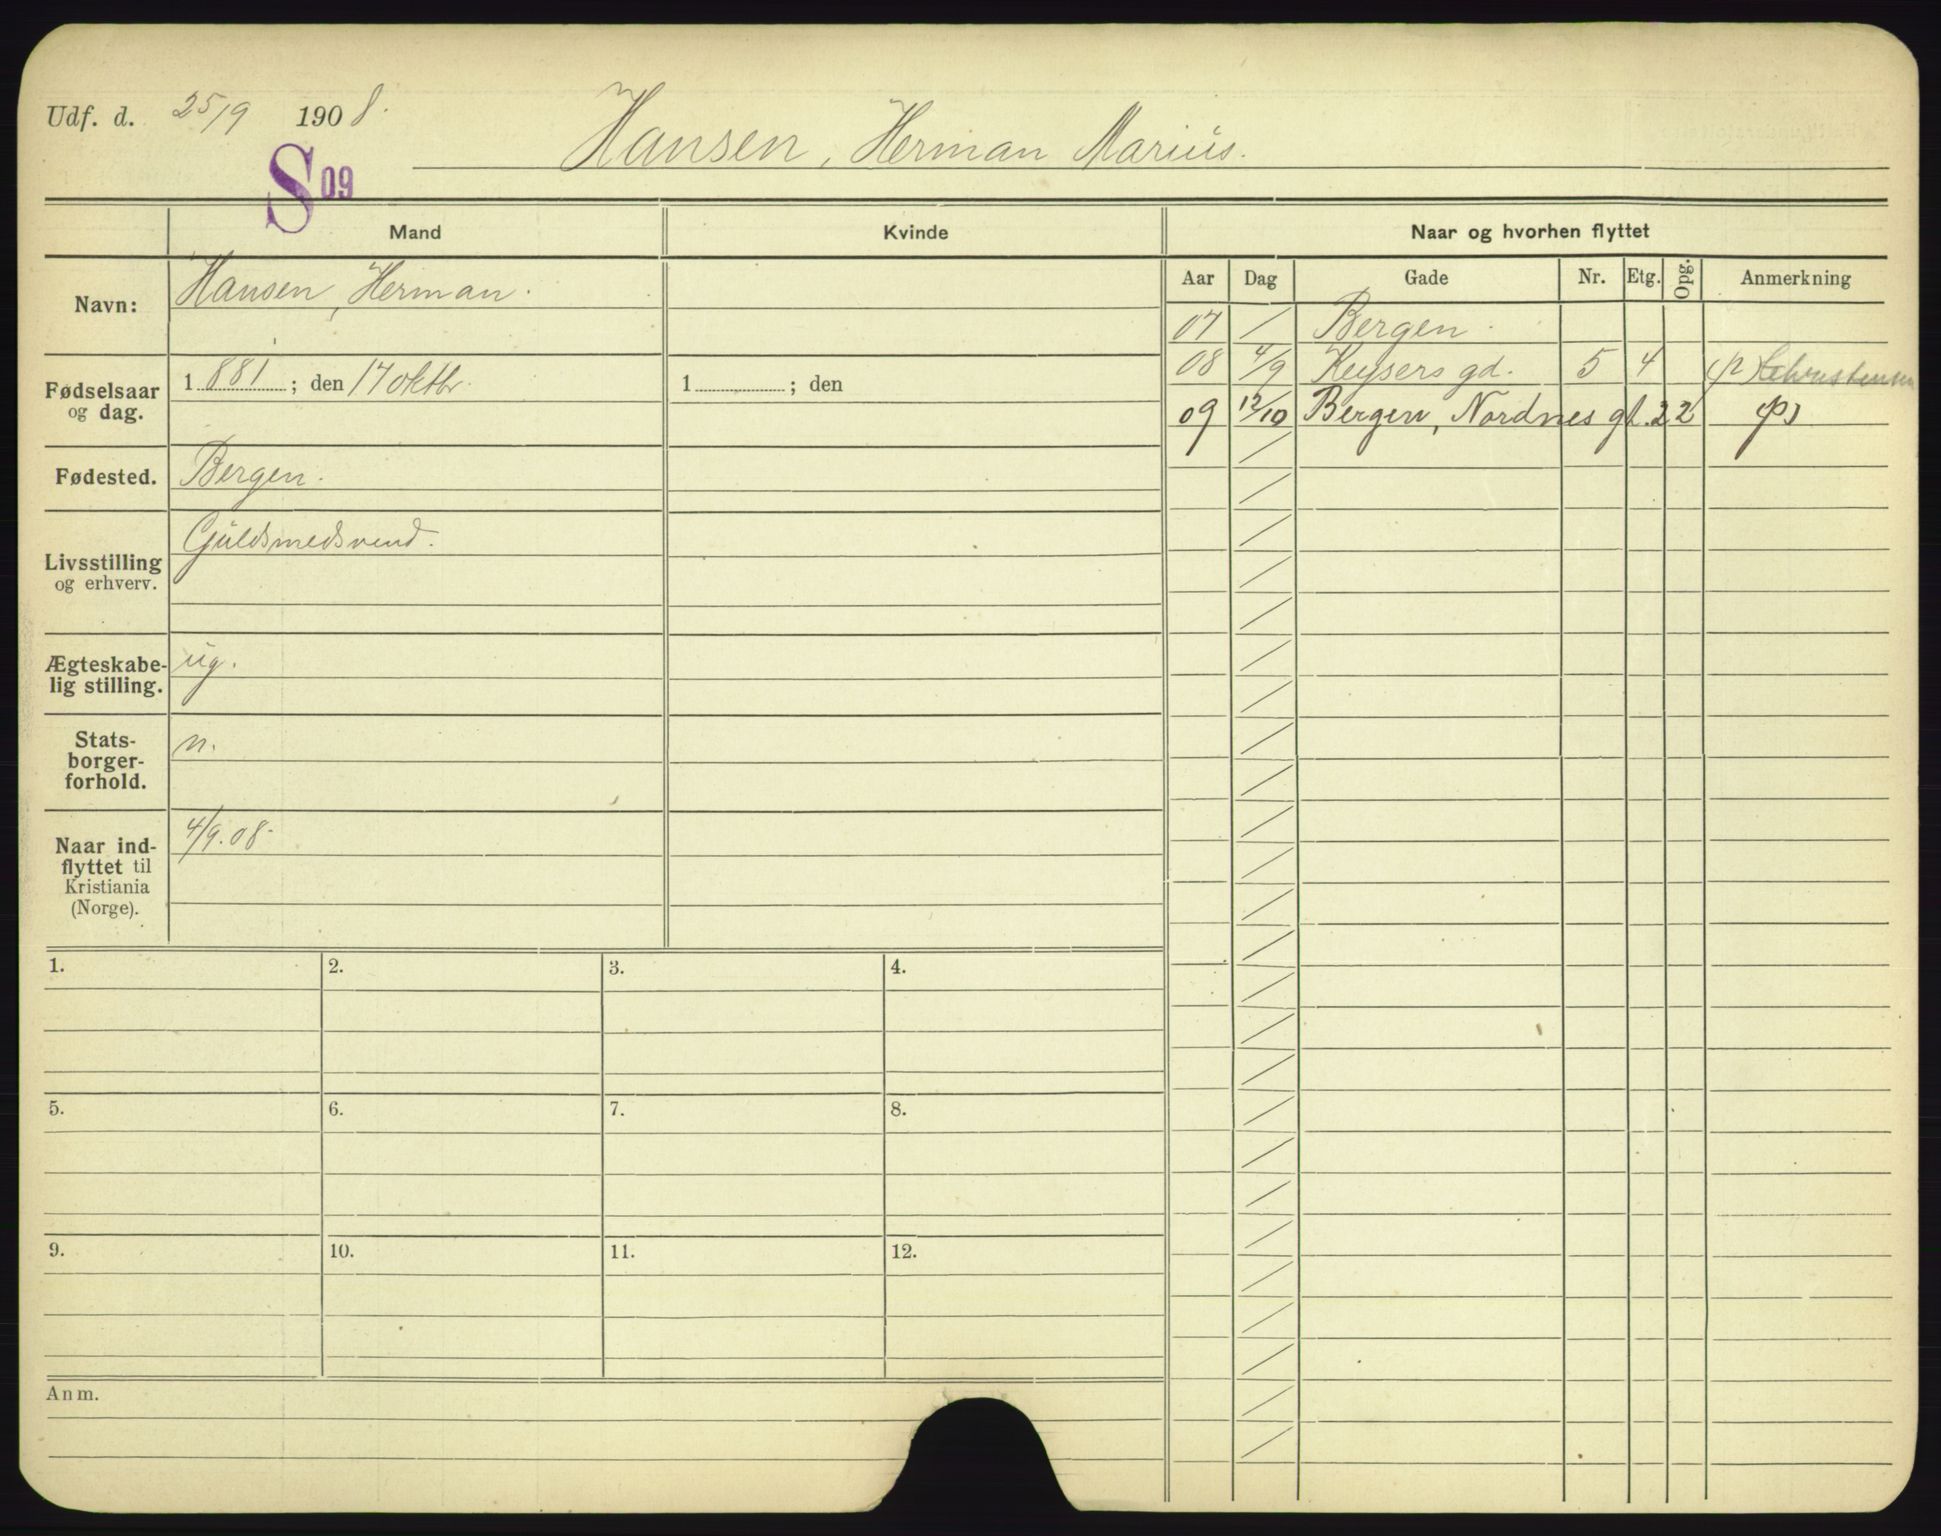 Udf. d. 25/9 1908.
Hansen, Herman Marius.
S 09
Mand Kvinde Naar og hvorhen flyttet
Aar Dag Gade Nr. Etg. Opg. Anmerkning
Navn: Hansen, Herman.
Fødselsaar og dag. 1881; den 17 oktbr. 1 ; den
Fødested. Bergen.
Livsstilling og erhverv. Guldsmedsvend.
Ægteskabe-
lig stilling. ug.
Stats-
borger-
forhold. n.
Naar ind-
flyttet til
Kristiania
(Norge). 4/9.08.
07 / Bergen.
08 4/9 Keysers gd. 5 4 Christensen
09 12/10 Bergen, Nordnes gt. 22
1. 2. 3. 4.
5. 6. 7. 8.
9. 10. 11. 12.
Anm.